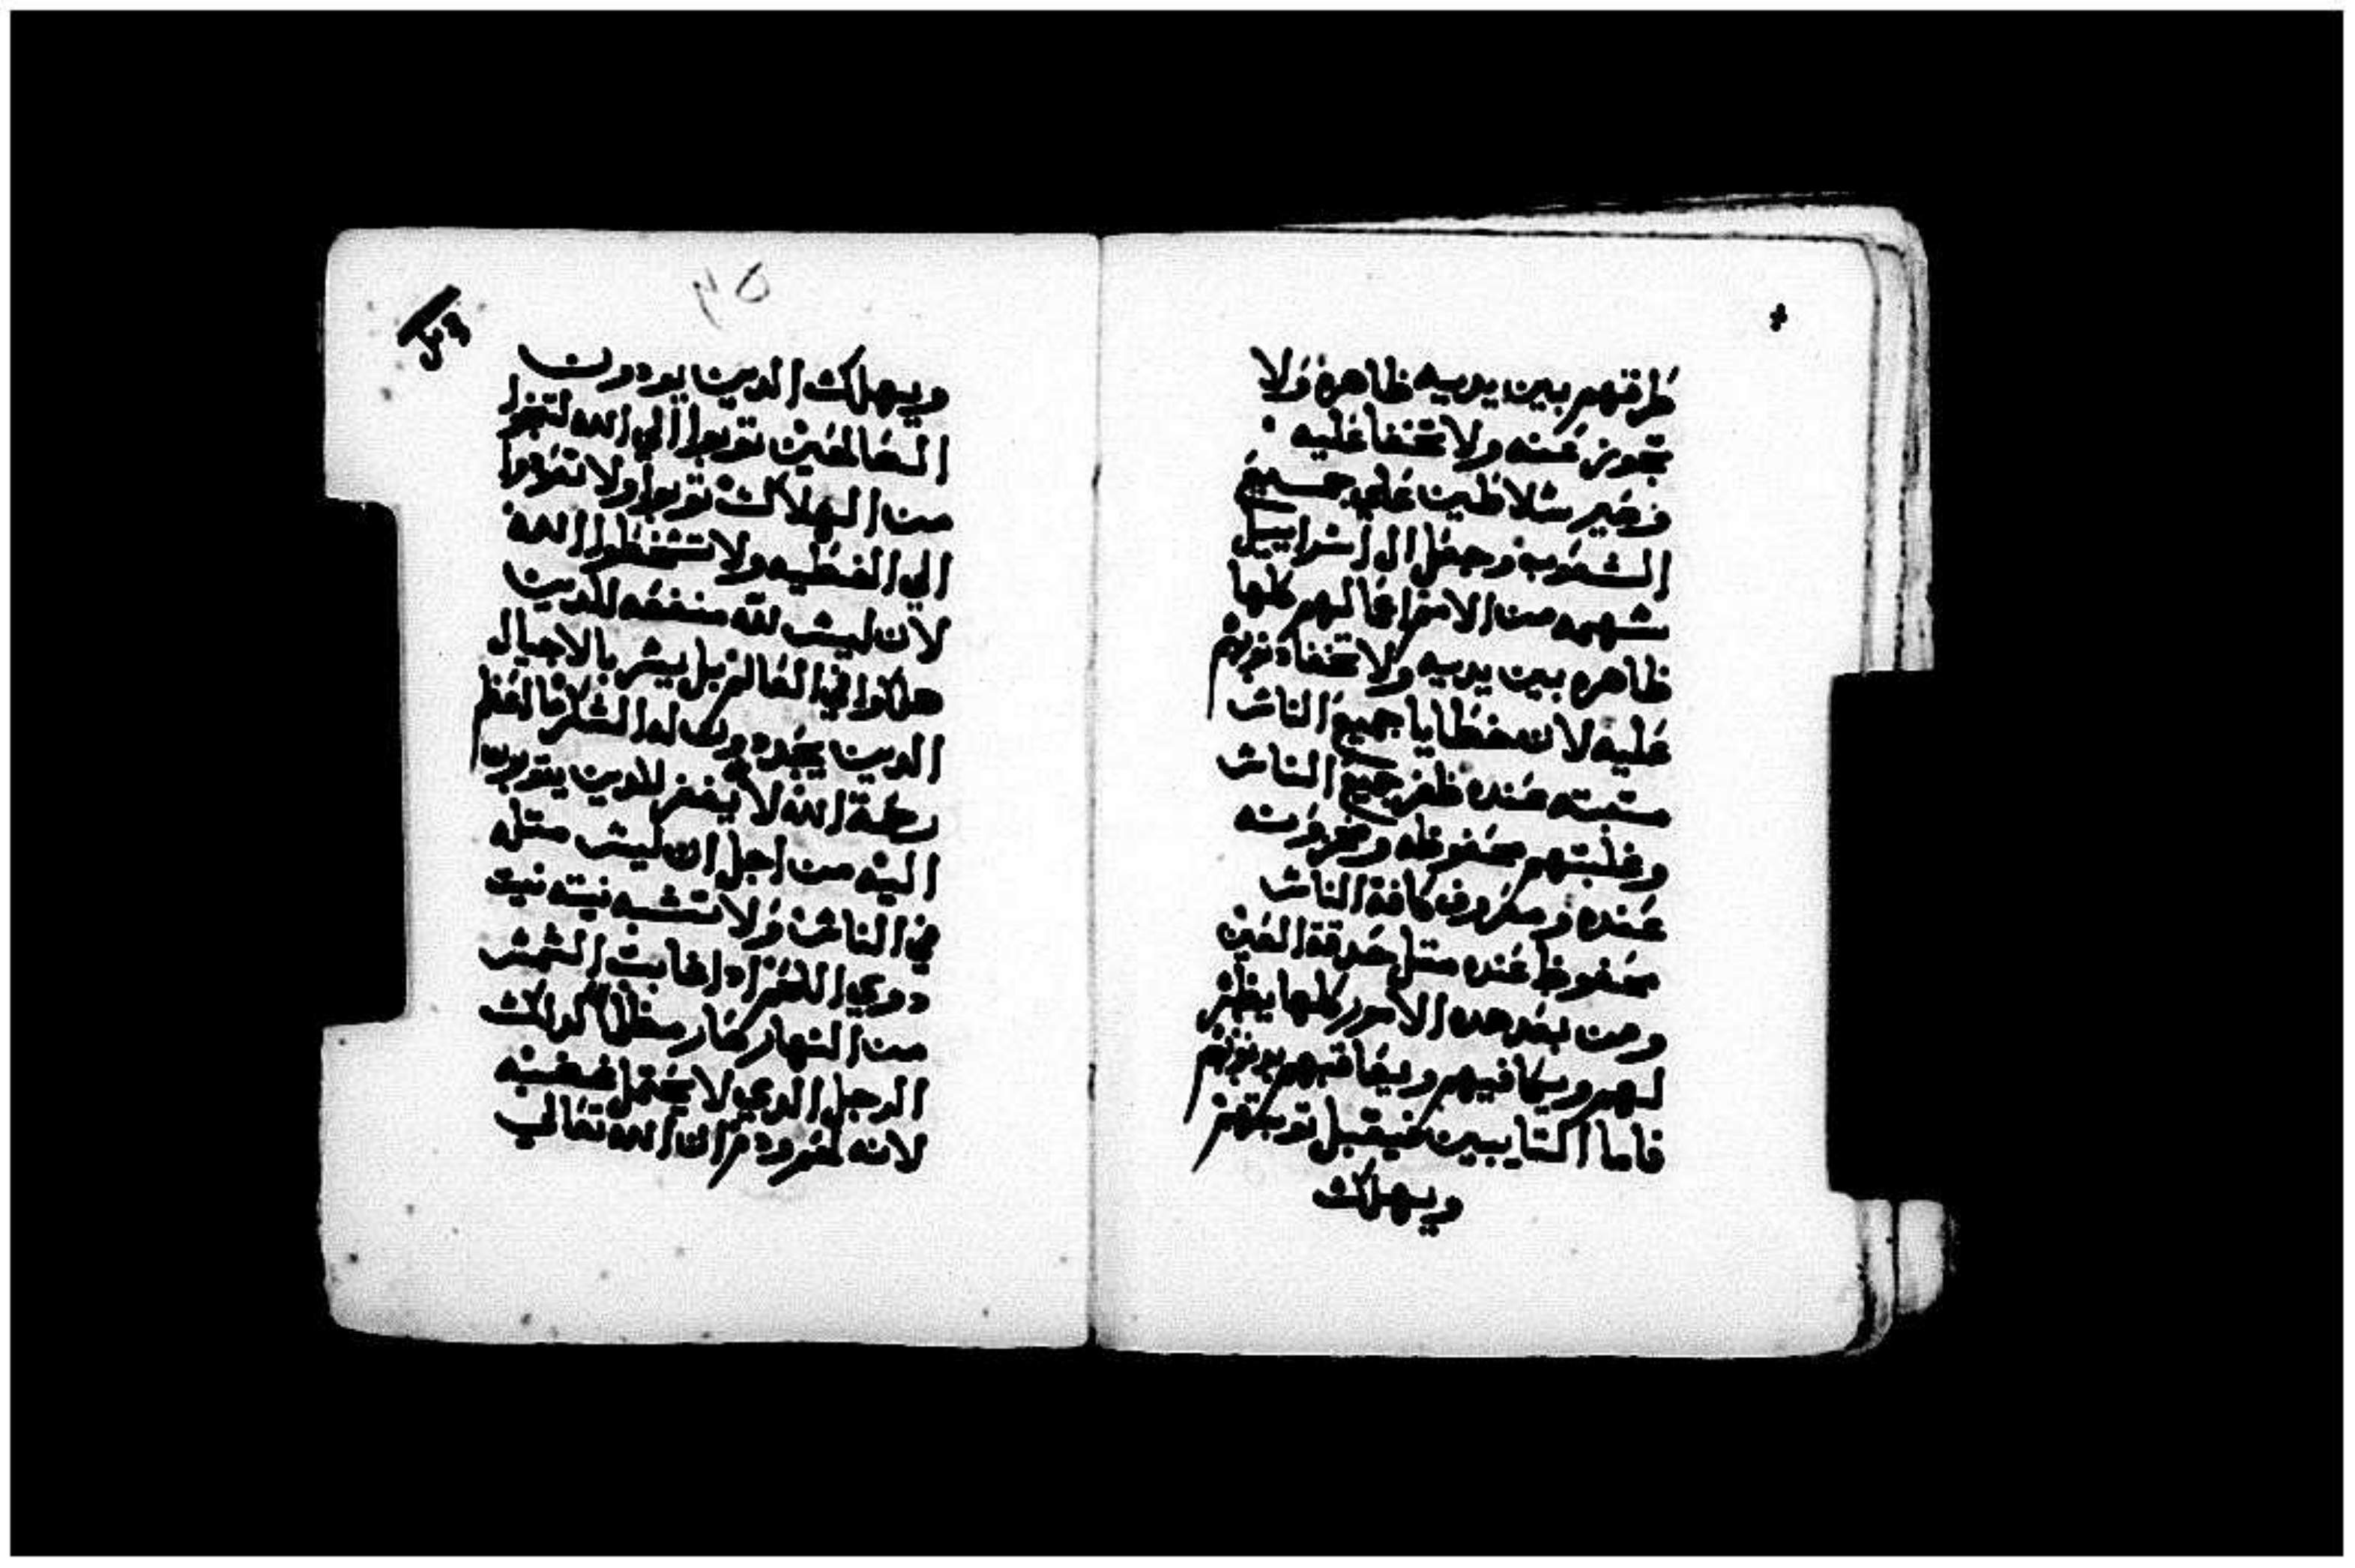 طرقهم بين يديه ظاهرة ولا
تجوز عنه ولا تخفا عليه
وصير سلاطين علي جميع
الشعوب وجعل ال اسراييل
سهمه من الامم اعمالهم كلها
ظاهره بين يديه ولا تخفا دنوبهم
عليه لان خطايا جميع الناس
متبته عنده ظفر جميع الناس
وغلبتهم محفوظه ومخزونه
عنده ومعروف كافة الناس
محفوظ عنده متل حدقة العين
ومن بعد هده الامور كلها يظهر
لهم ويكافيهم ويعاقبهم بدنوبهم
فاما التايبين فيقبل توبتهم
ويهلك
٣٥
ويهلك الدين يودون
الصالحين توبوا الي الله لتنجوا
من الهلاك توبوا ولا تعودوا
الي الخطيه ولا تسخطوا الله
لان ليس لله منفعه للدين
هلكوا في العالم بل يسر بالاجيال
الدين يجددون له الشكر ما اعظم
رحمة الله لانه يغفر للدين يتوبون
اليه من اجل ان ليس متله
في الناس ولا تشبه نيته نيت
دوي اللحم ادا غابت الشمس
من النهار صار مظلما كدلك
الرجل الدي لا يحتمل غضبه
لانه لحم ودم ان الله تعالي